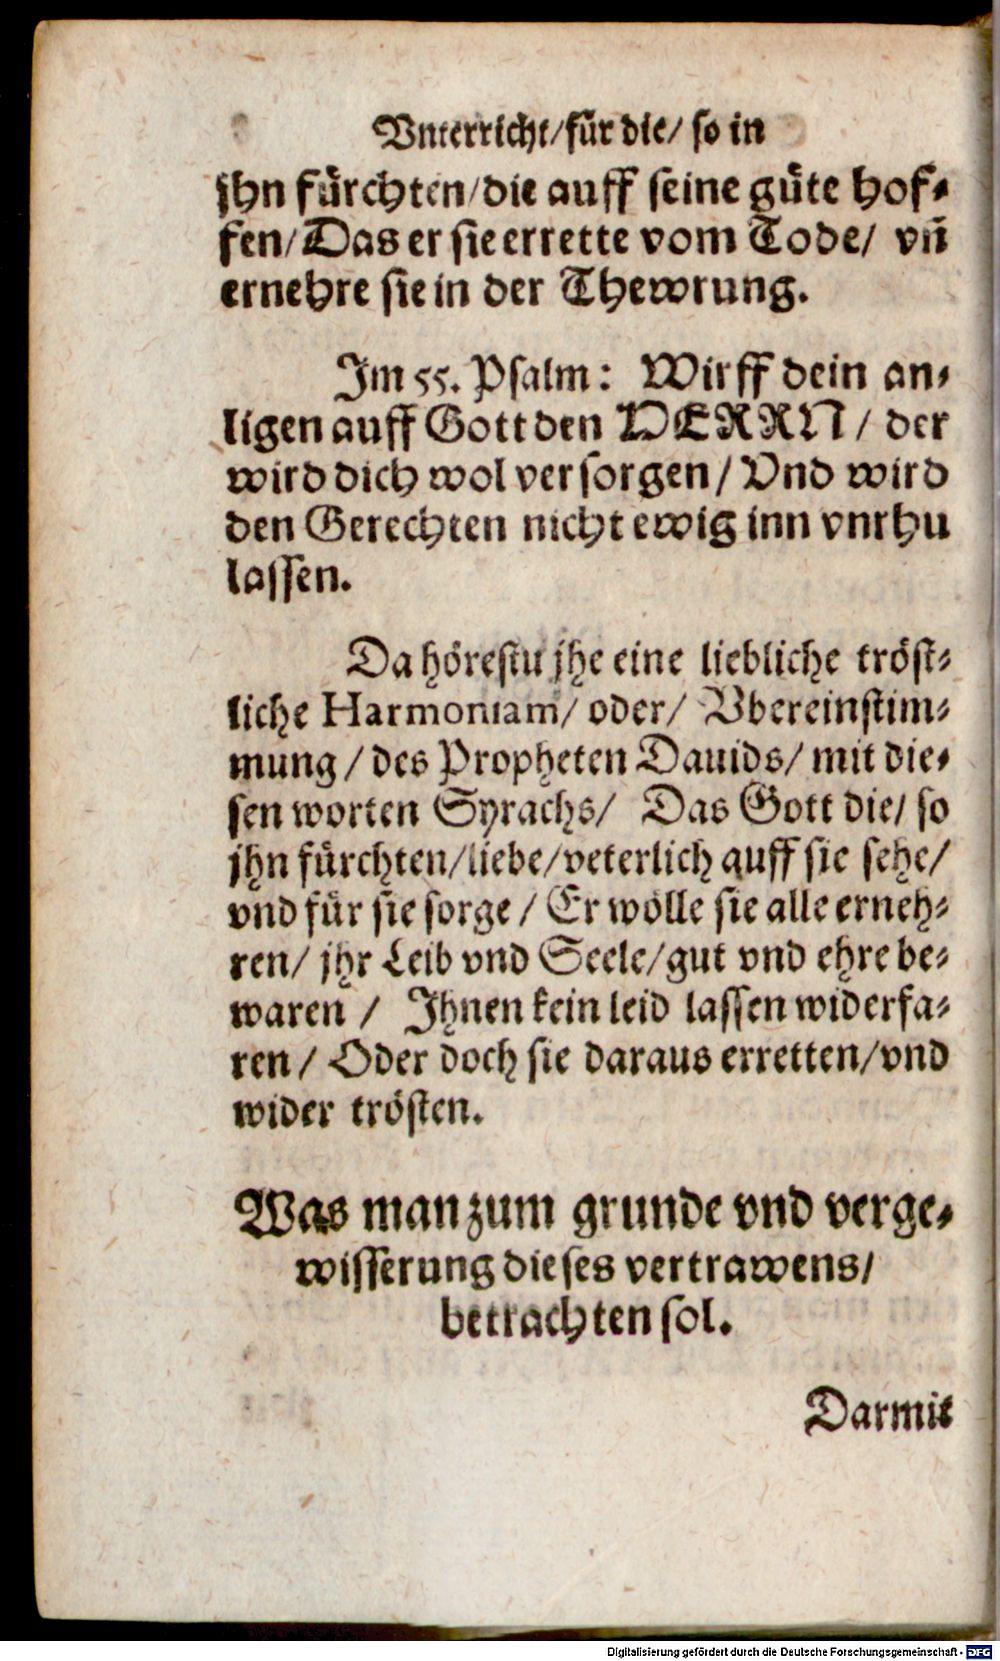 Vnterricht/für die/ so in
jhn fürchten/die auff seine güte hof-
fen/Das er sie errette vom Tode/ vñ
ernehre sie in der Thewrung.
Im 55. Psalm: Wirff dein an-
ligen auff Gott den HERRN/ der
wird dich wol versorgen/ Vnd wird
den Gerechten nicht ewig inn vnrhu
lassen.
Da hörestu jhe eine liebliche tröst-
liche Harmoniam/ oder/ Vbereinstim-
mung/ des Propheten Dauids/ mit die-
sen worten Syrachs/ Das Gott die/ so
jhn fürchten/liebe/veterlich auff sie sehe/
vnd für sie sorge/ Er wölle sie alle erneh-
ren/ jhr Leib vnd Seele/gut vnd ehre be-
waren/ Ihnen kein leid lassen widerfa-
ren/ Oder doch sie daraus erretten/vnd
wider trösten.
Was man zum grunde vnd verge-
wisserung dieses vertrawens/
betrachten sol.
Darmit
Digitalisierung gefördert durch die Deutsche Forschungsgemeinschaft - DFG